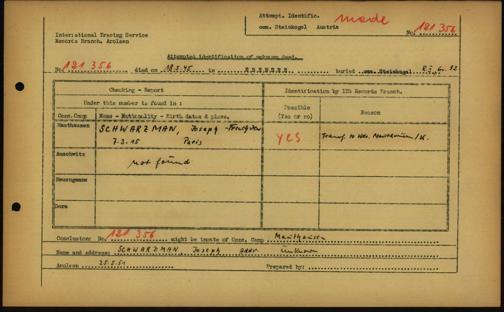 Attempt. Identific. made
International Tracing Service
Records Branch, Arolsen
cem. Steinkogel Austria
No. 121 356
Attempted identification of unknown dead.
No. 121 356 died on 18.5.45 in EBENSEE buried cem. Steinkogel
Checking - Report
Identification by ITS Records Branch.
Under this number is found in :
Possible
(Yes or no)
Reason
Conc.Camp
Name - Nationality - Birth dates & place.
Mauthausen
SCHWARZMAN, Joseph
7.2.15 Paris
YES
Auschwitz
not found
Neuengamme
Dora
Conclusion: No. 121 356 might be inmate of Conc. Camp Mauthausen
Name and address: SCHWARZMAN, Joseph addr. unknown
Arolsen 25.5.51
Prepared by: